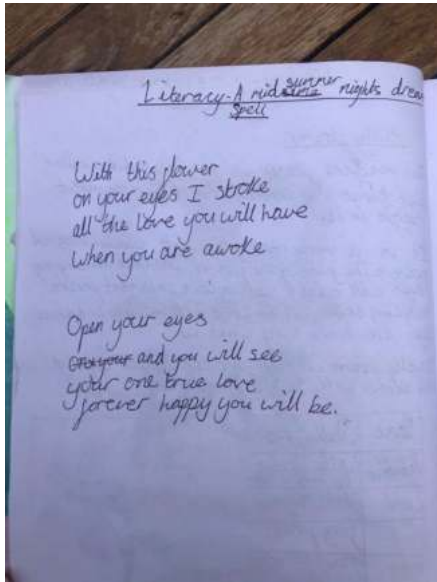 Literacy - A mid summer nights dream
Spell
With this flower
on your eyes I stroke
all the love you will have
when you are awoke
Open your eyes
and you will see
your one true love
forever happy you will be.